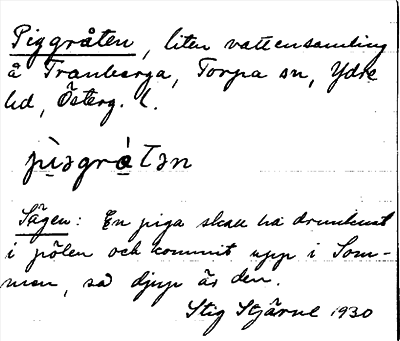 Piggråten, liten vattensamling
å Tranberga, Torpa sn, Ydre
hd, Österg. l.
pìgǝgrátǝn
Sägen: En piga skall ha drunknat
i pölen och kommit upp i Som-
men, så djup är den.
Stig Stjärne 1930